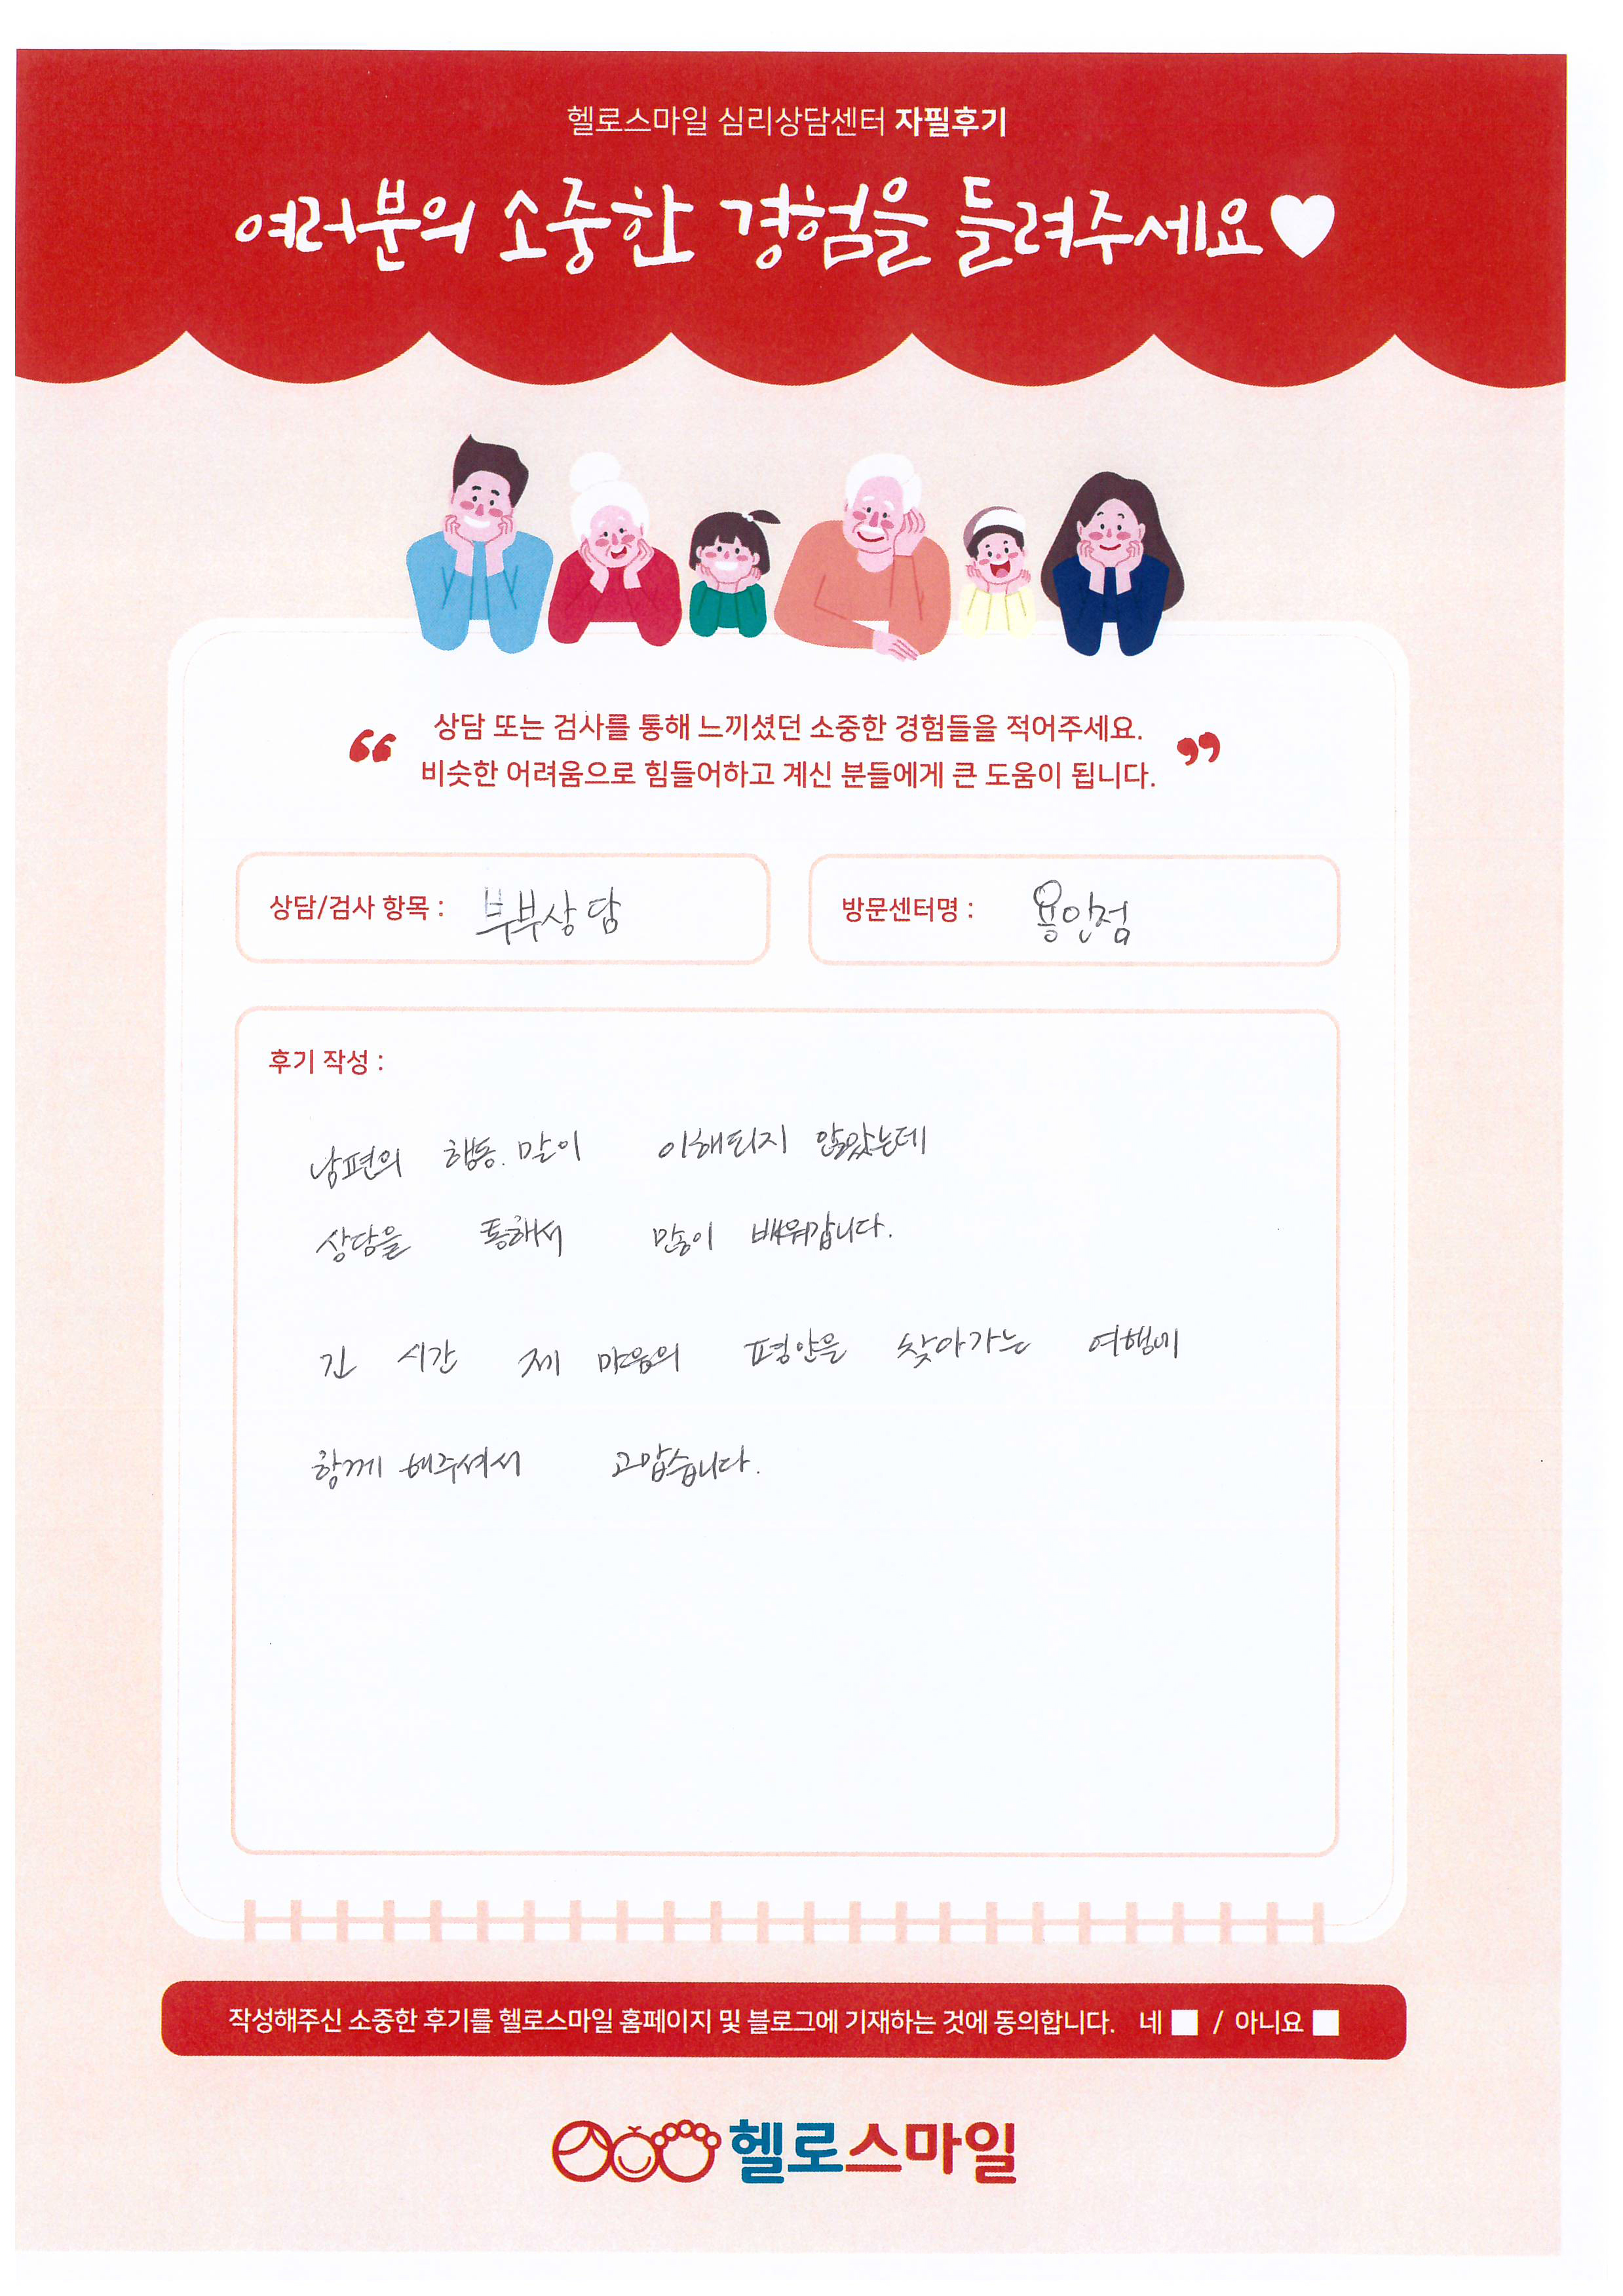 헬로스마일 심리상담센터 자필후기
여러분의 소중한 경험을 들려주세요
상담 또는 검사를 통해 느끼셨던 소중한 경험들을 적어주세요.
비슷한 어려움으로 힘들어하고 계신 분들에게 큰 도움이 됩니다.
상담/검사 항목 : 부부상담
방문센터명 : 용인점
후기 작성 :
남편의 행동. 말이 이해되지 않았는데
상담을 통해서 많이 배워갑니다.
긴 시간 제 마음의 평안을 찾아가는 여행에
함께 해주셔서 고맙습니다.
작성해주신 소중한 후기를 헬로스마일 홈페이지 및 블로그에 기재하는 것에 동의합니다. 네 / 아니요
헬로스마일